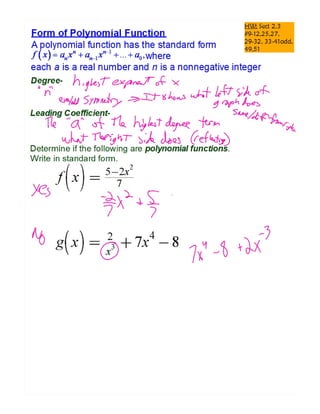 HW: Sect 2.3
#9-12,25,27,
29-32, 33-41odd,
49,51
Form of Polynomial Function
A polynomial function has the standard form
f(x) = aₙxⁿ + aₙ₋₁xⁿ⁻¹ + ... + a₀, where
each a is a real number and n is a nonnegative integer
Degree- highest exponent of x
"n" Symmetry ⇒ It shows what left side of
graph does
Leading Coefficient-
The "a" of the highest degree term
what The right side does (reflecting)
Determine if the following are polynomial functions.
Write in standard form.
yes f(x) = (5 − 2x²)/7
-2/7 x² + 5/7
No g(x) = 2/x³ + 7x⁴ − 8
7x⁴ − 8 + 2x⁻³